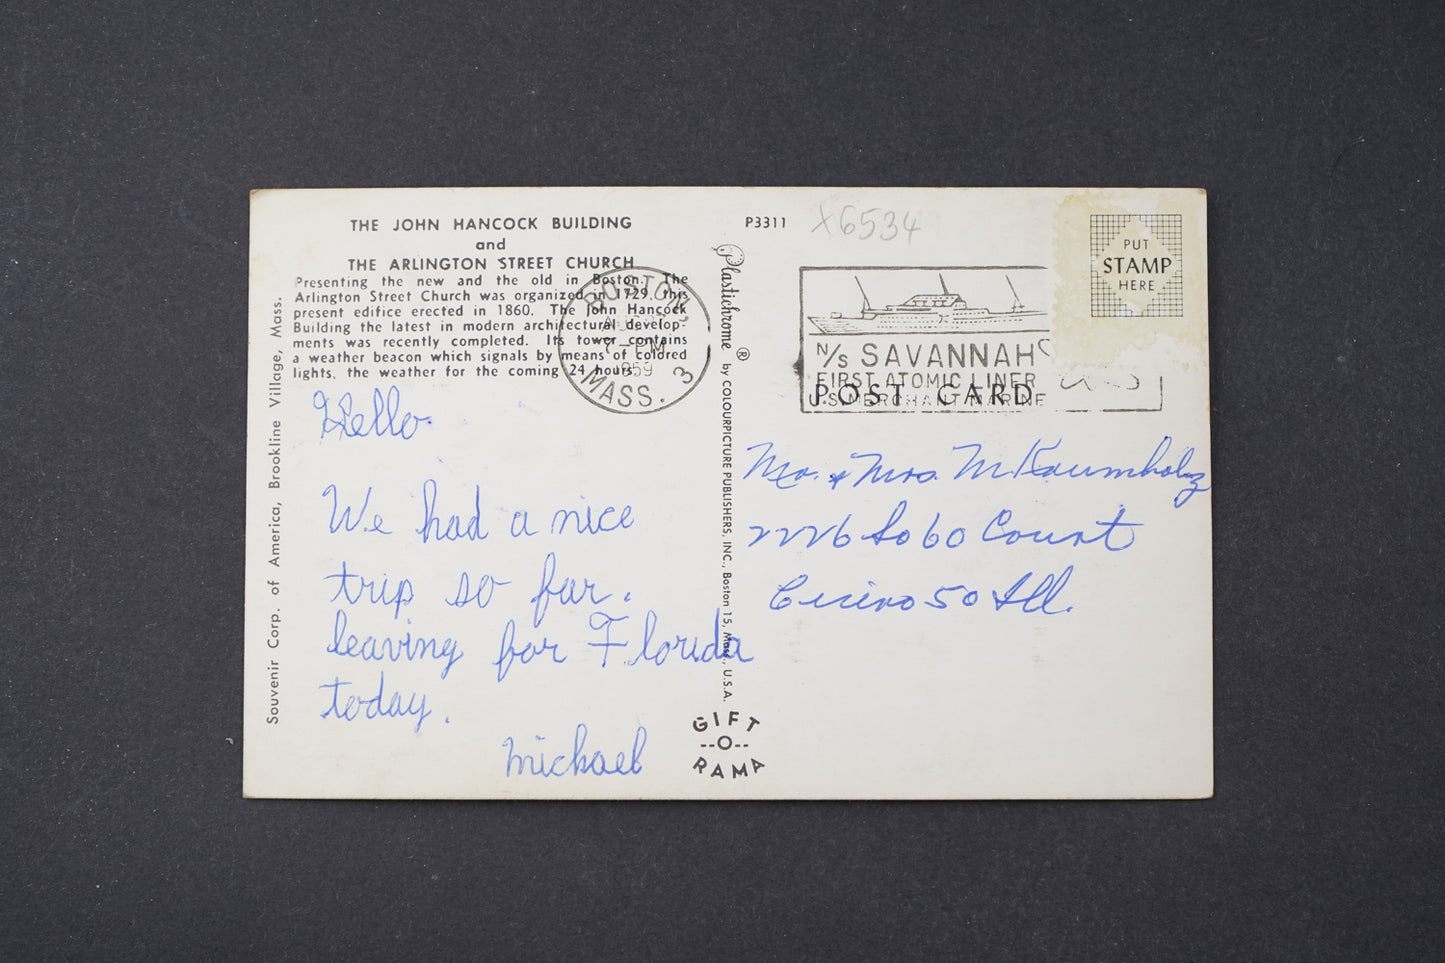 THE JOHN HANCOCK BUILDING
and
THE ARLINGTON STREET CHURCH
Presenting the new and the old in Boston. The
Arlington Street Church was organized in 1729, this
present edifice erected in 1860. The John Hancock
Building the latest in modern architectural develop-
ments was recently completed. Its tower contains
a weather beacon which signals by means of colored
lights, the weather for the coming 24 hours.
Souvenir Corp. of America, Brookline Village, Mass.
BOSTON,
AUG
7-PM
1959
MASS. 3
Hello
We had a nice
trip so far.
leaving for Florida
today.
Michael
P3311
X6534
Plastichrome ® by COLOURPICTURE PUBLISHERS, INC., Boston 15, Mass., U.S.A.
GIFT
--O--
RAMA
PUT
STAMP
HERE
N/S SAVANNAH
FIRST ATOMIC LINER
U.S. MERCHANT MARINE
POST CARD
Mr. & Mrs. M Kaumholz
2226 So 60 Court
Cicero 50 Ill.